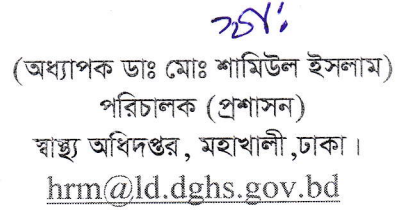 স্বাঃ
(অধ্যাপক ডাঃ মোঃ শামিউল ইসলাম)
পরিচালক (প্রশাসন)
স্বাস্থ্য অধিদপ্তর, মহাখালী,ঢাকা।
hrm@ld.dghs.gov.bd